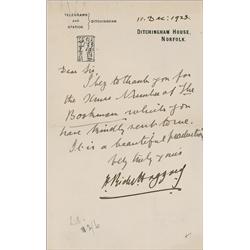 TELEGRAMS
AND
STATION
DITCHINGHAM
11. Dec: 1923.
DITCHINGHAM HOUSE,
NORFOLK.
Dear Sir,
I beg to thank you for
the Xmas Number of The
Bookman which you
have kindly sent to me.
It is a beautiful production
Very truly yours
H. Rider Haggard